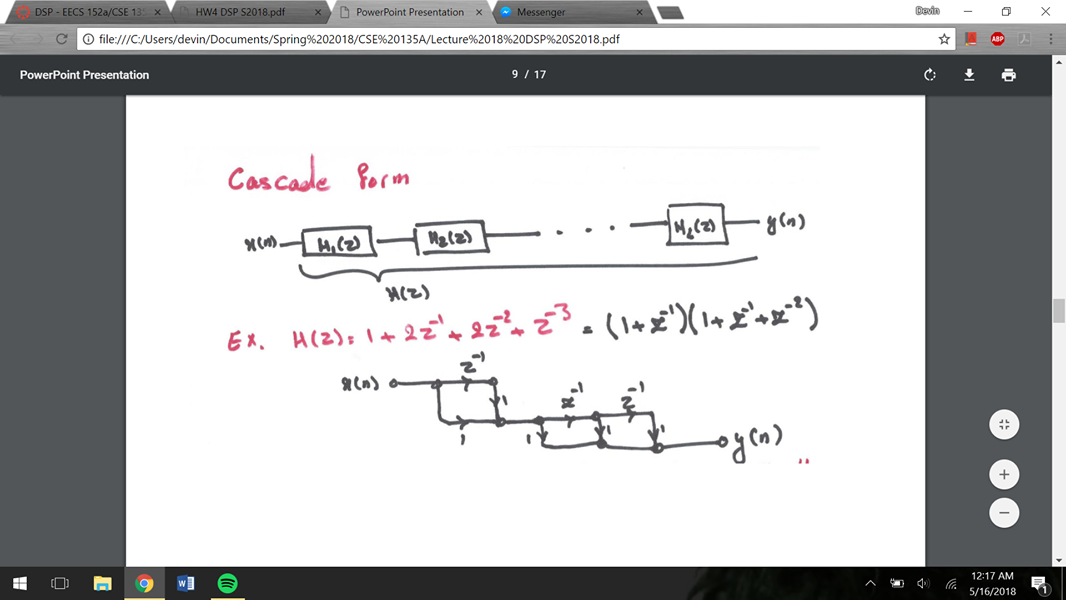 DSP - EECS 152a/CSE 13
HW4 DSP S2018.pdf
PowerPoint Presentation
Messenger
Devin
file:///C:/Users/devin/Documents/Spring%202018/CSE%20135A/Lecture%2018%20DSP%20S2018.pdf
ABP
PowerPoint Presentation
9 / 17
Cascade form
x(n) H₁(z) H₂(z) . . . H_L(z) y(n)
H(z)
Ex. H(z) = 1 + 2z⁻¹ + 2z⁻² + z⁻³ = (1+z⁻¹)(1+z⁻¹+z⁻²)
z⁻¹
x(n)
1 z⁻¹ z⁻¹
1 1 1 1
y(n)
12:17 AM
5/16/2018
1